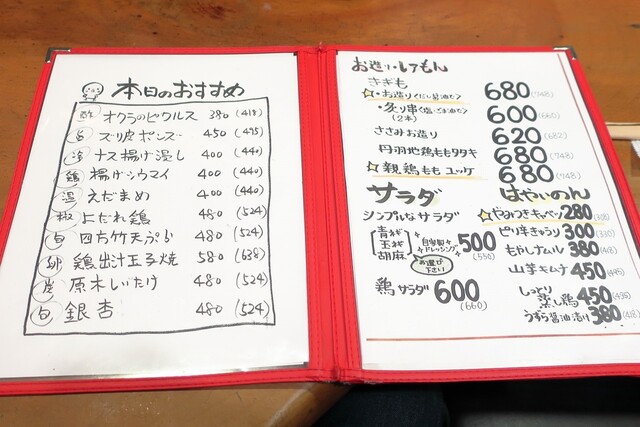 本日のおすすめ
酢 オクラのピクルス 380 (418)
ズリ皮ポンズ 450 (495)
冷 ナス揚げ浸し 400 (440)
鶏 揚げシウマイ 400 (440)
温 えだまめ 400 (440)
椒 よだれ鶏 480 (524)
旬 四方竹天ぷら 480 (524)
卵 鶏出汁玉子焼 580 (638)
炭 原木しいたけ 480 (524)
旬 銀杏 480 (524)
お造り・レアもん
きぎも
☆・お造り<だし醤油で> 680 (748)
・炙り串<塩・ごま油で> 600 (660)
(2本)
ささみお造り 620 (682)
丹羽地鶏ももタタキ 680 (748)
☆親鶏もも ユッケ 680 (748)
サラダ
シンプルなサラダ
青ネギ
玉ネギ
胡麻
自家製ドレッシング
お選び下さい
500
(550)
鶏サラダ 600
(660)
はやいのん
☆やみつきキャベツ 280 (308)
ピリ辛きゅうり 300 (330)
もやしナムル 380 (418)
山芋キムチ 450 (495)
しっとり
蒸し鶏 450 (495)
うずら醤油漬け 380 (418)